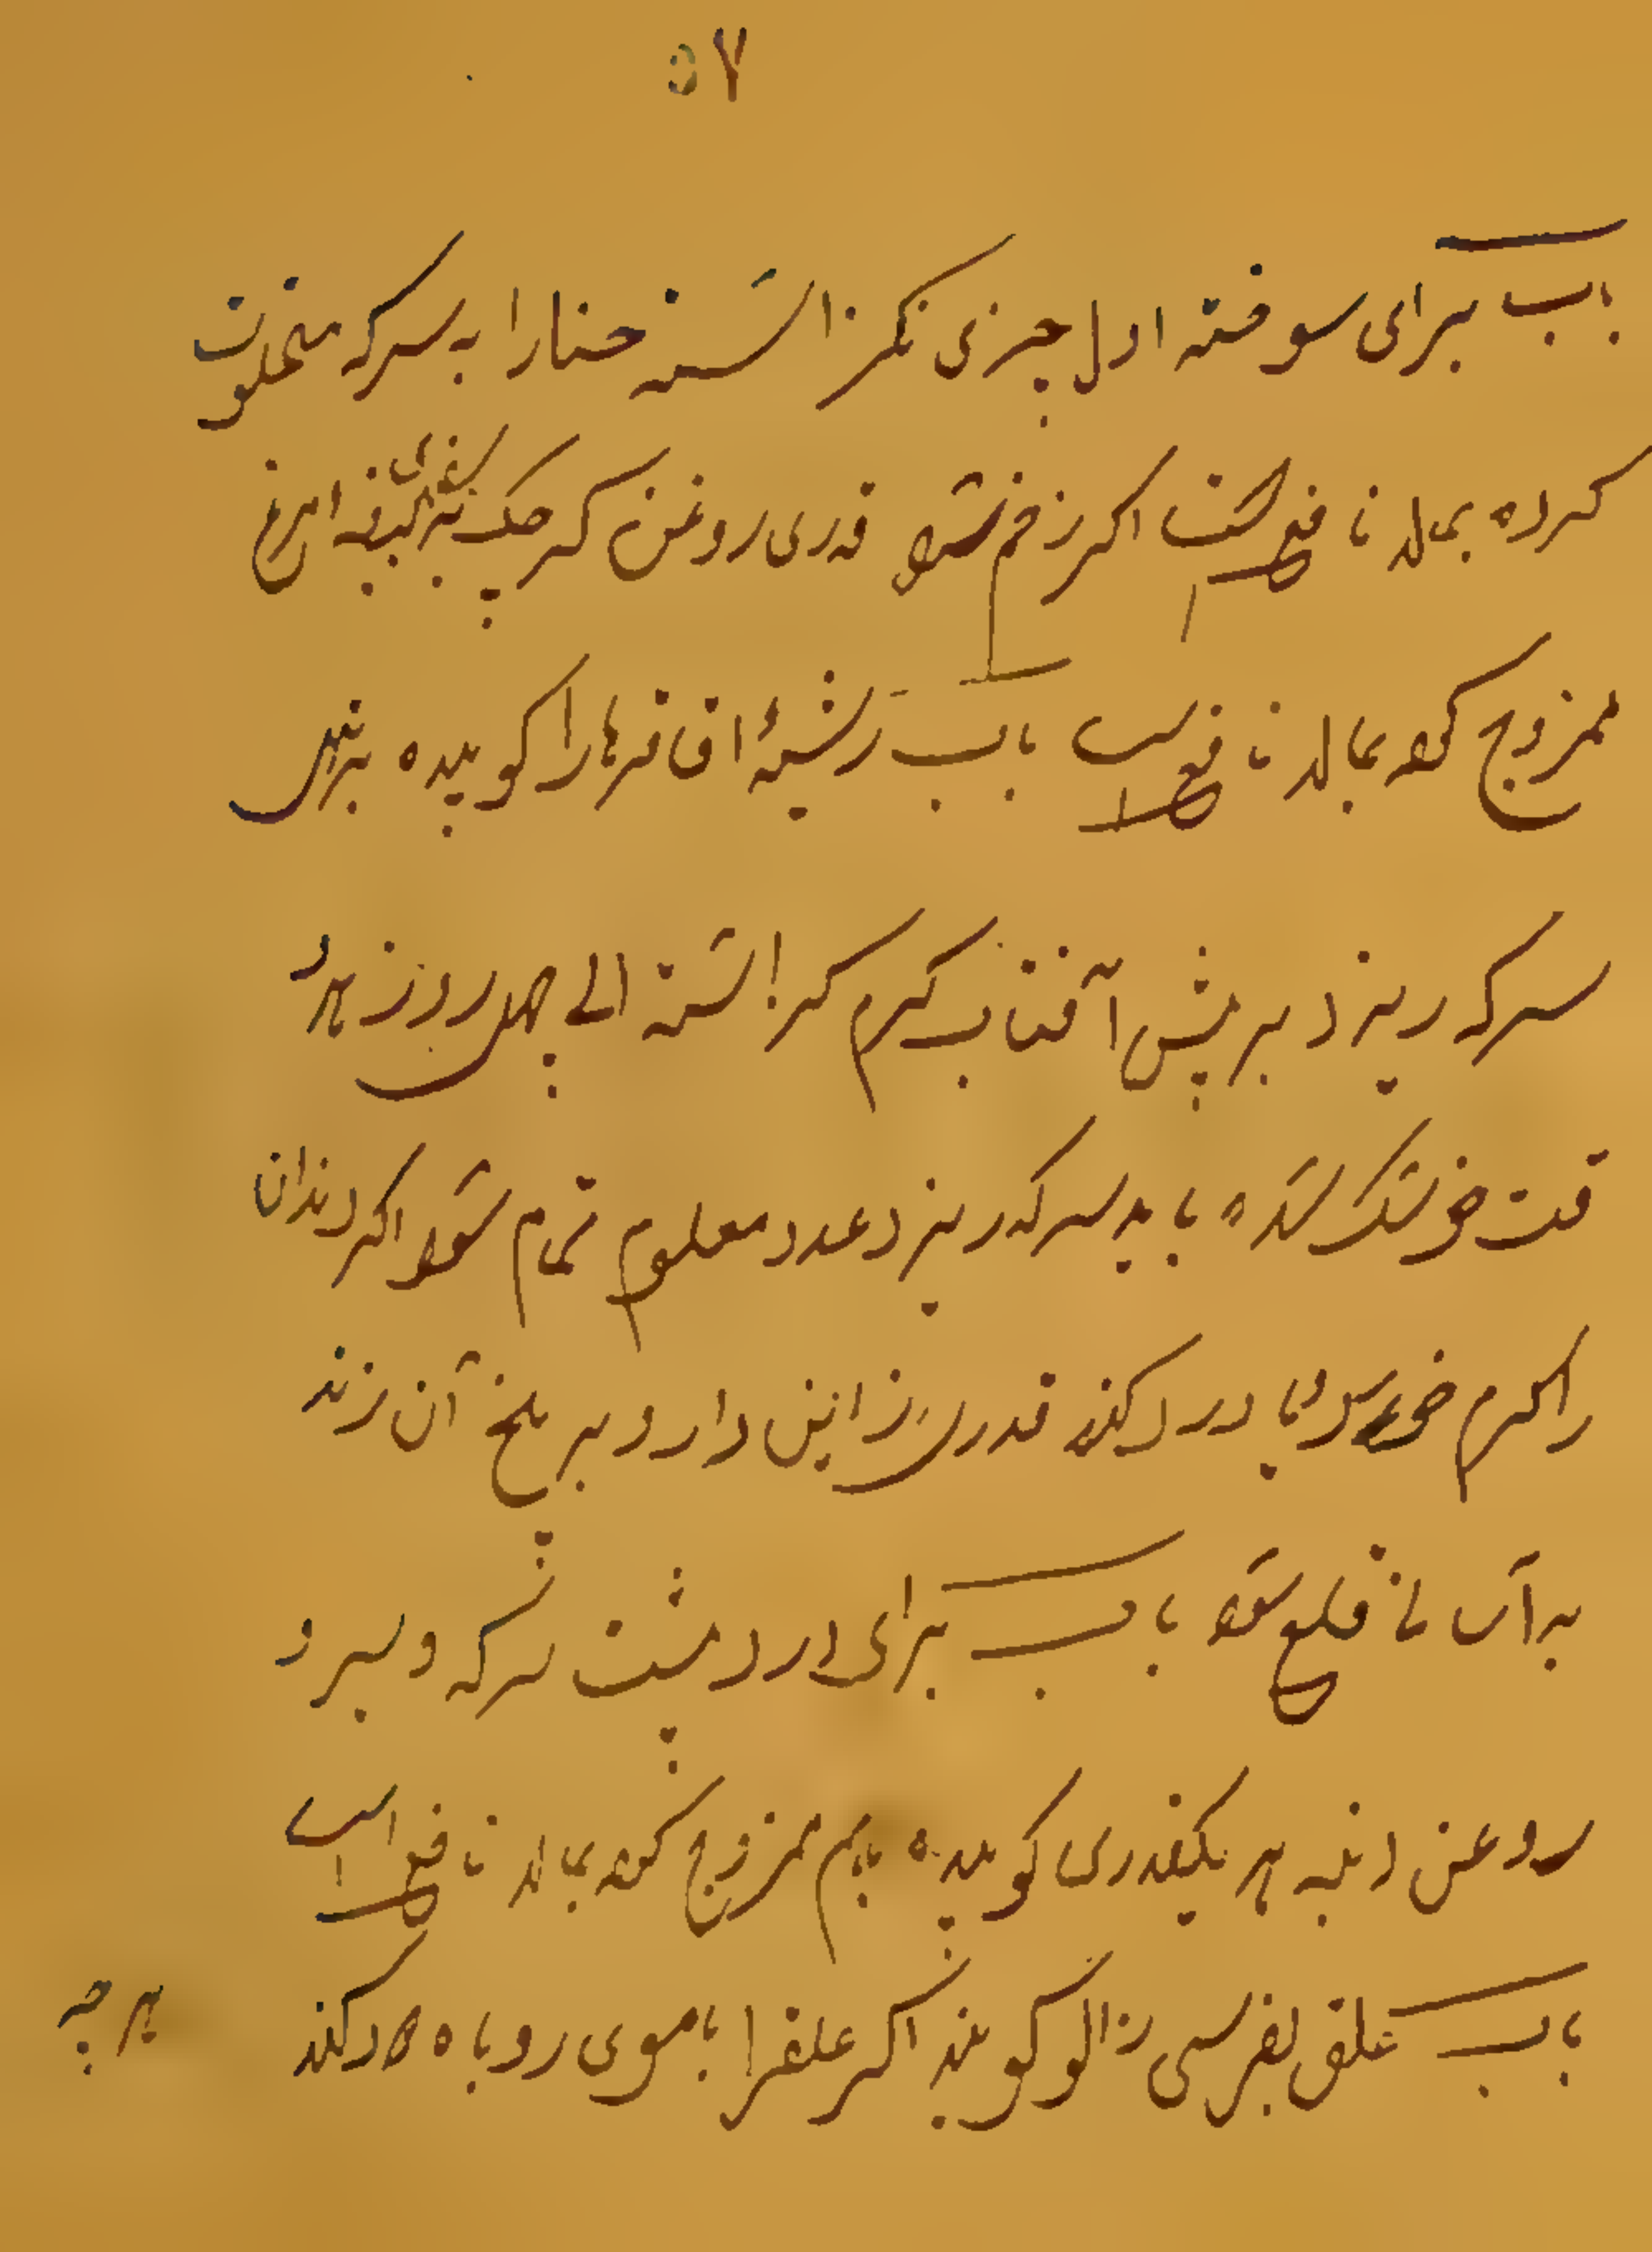 ۵۷
باب برای سوخته اول چیزی نکزاشته حنا را به سرکه مخلوت
کرده بمالد نافع است اکر زخم شود قدری روغن کرچک بسفیده
ممزوج کرده بمالد نافع است باب ریشیهٔ اقاقرها را کوبیده بر
سرکه ریزد بر پیش آفتاب کرم کزاشته الی چهل روز هر
قت خوشک شده باید سرکه ریزد عدد معلوم تمام شود اکر دندان
را کرم خورده و یا درد کند قدری از این دارو بر بلخ آن زند
به آسانی قلع شود باب برای درد پشت سرکه و سیر و
روغن دنبه هر یکقدری کوبیده باهم ممزوج کرده بمالد نافع است
باب علق بفرسی زالو کویند اکر علقرا با موی روباه دود کند
هر چه